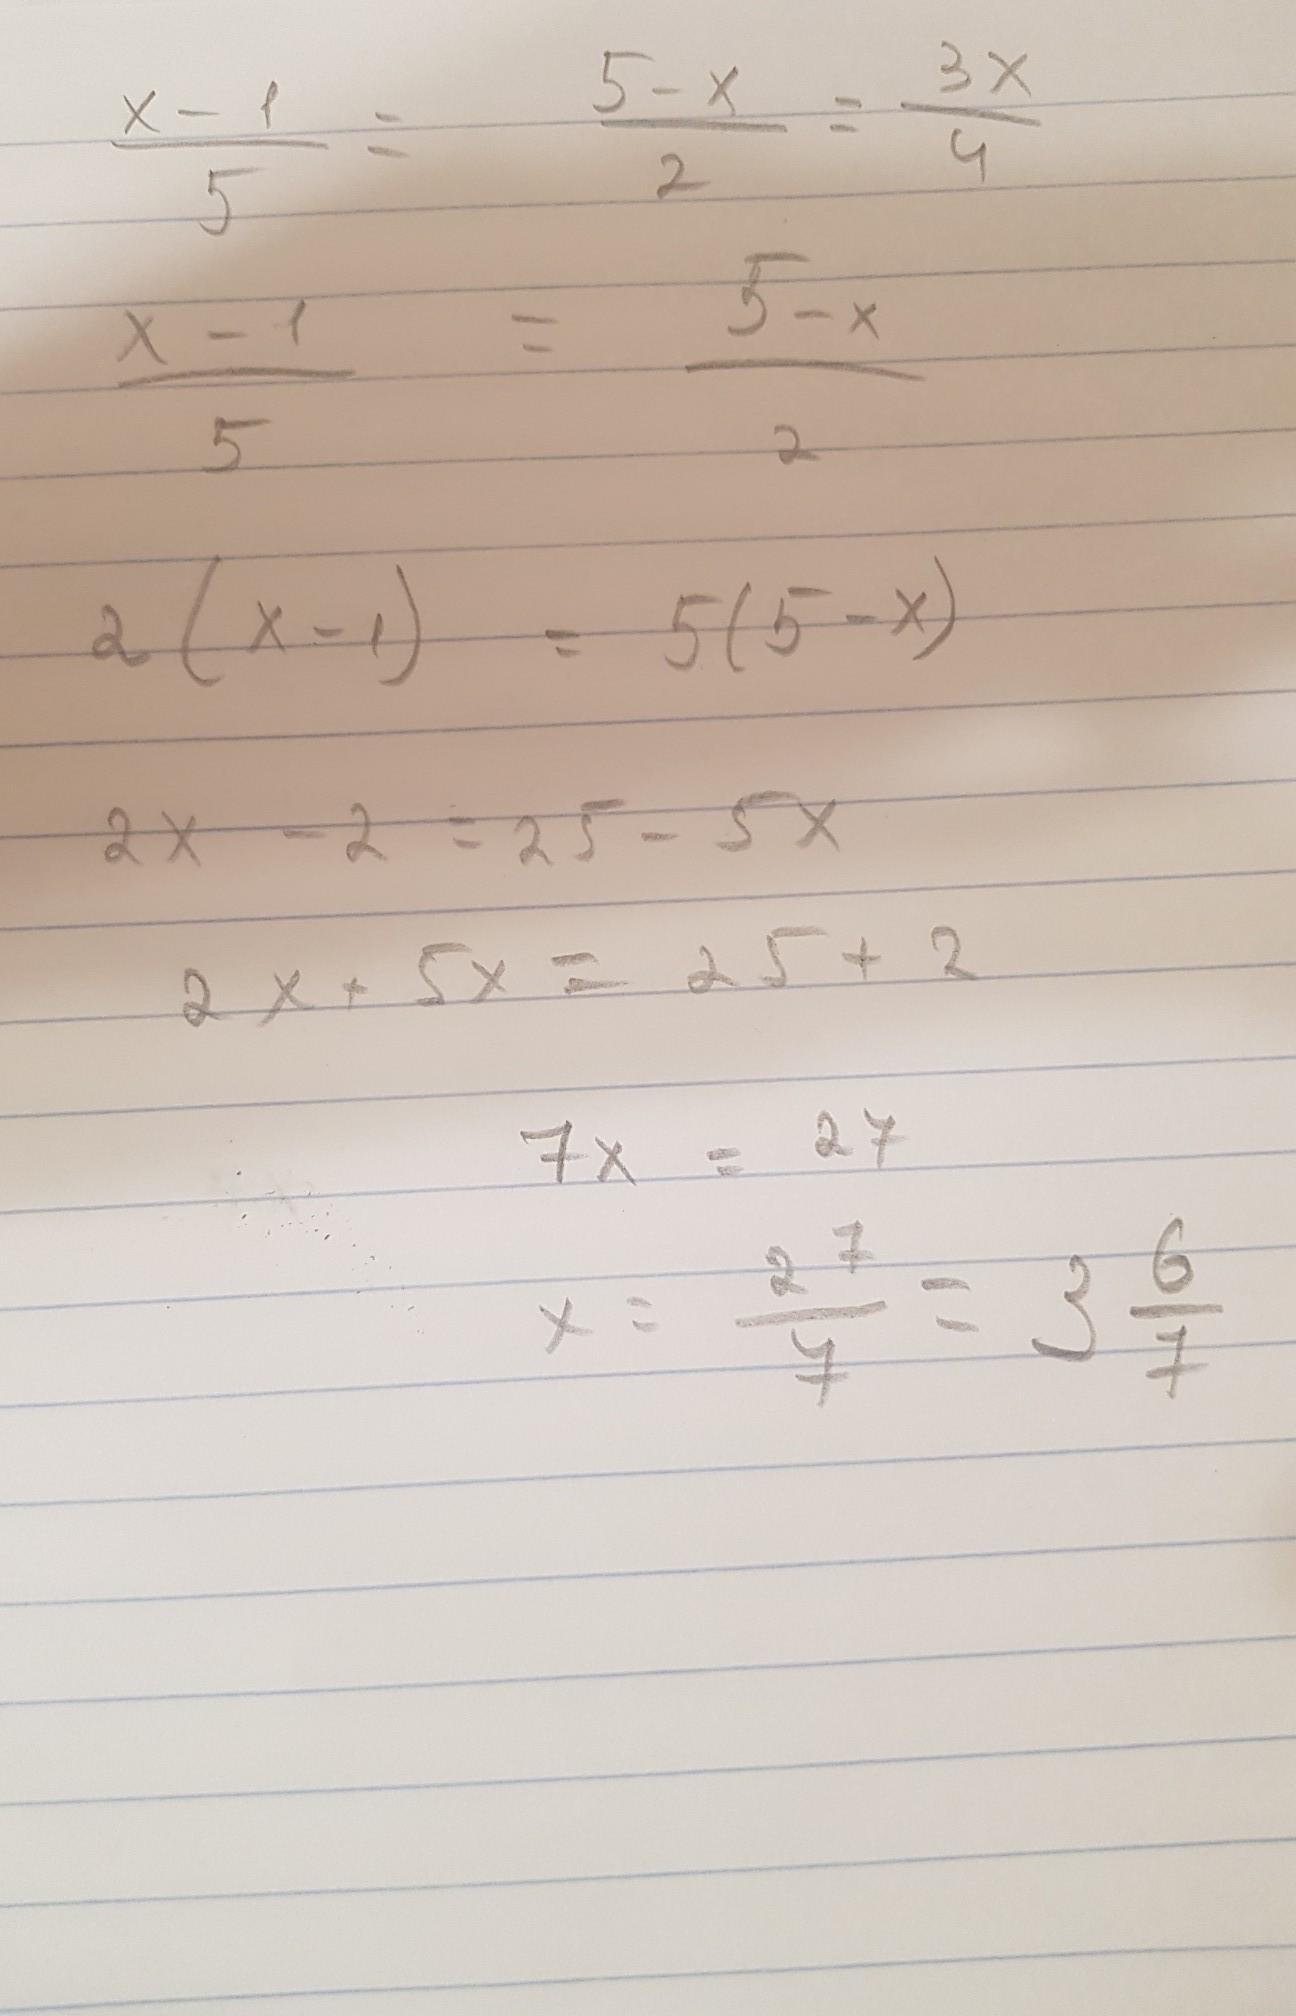 x - 1 / 5 = 5 - x / 2 = 3x / 4
x - 1 / 5 = 5 - x / 2
2 (x - 1) = 5(5 - x)
2x - 2 = 25 - 5x
2x + 5x = 25 + 2
7x = 27
x = 27 / 7 = 3 6/7